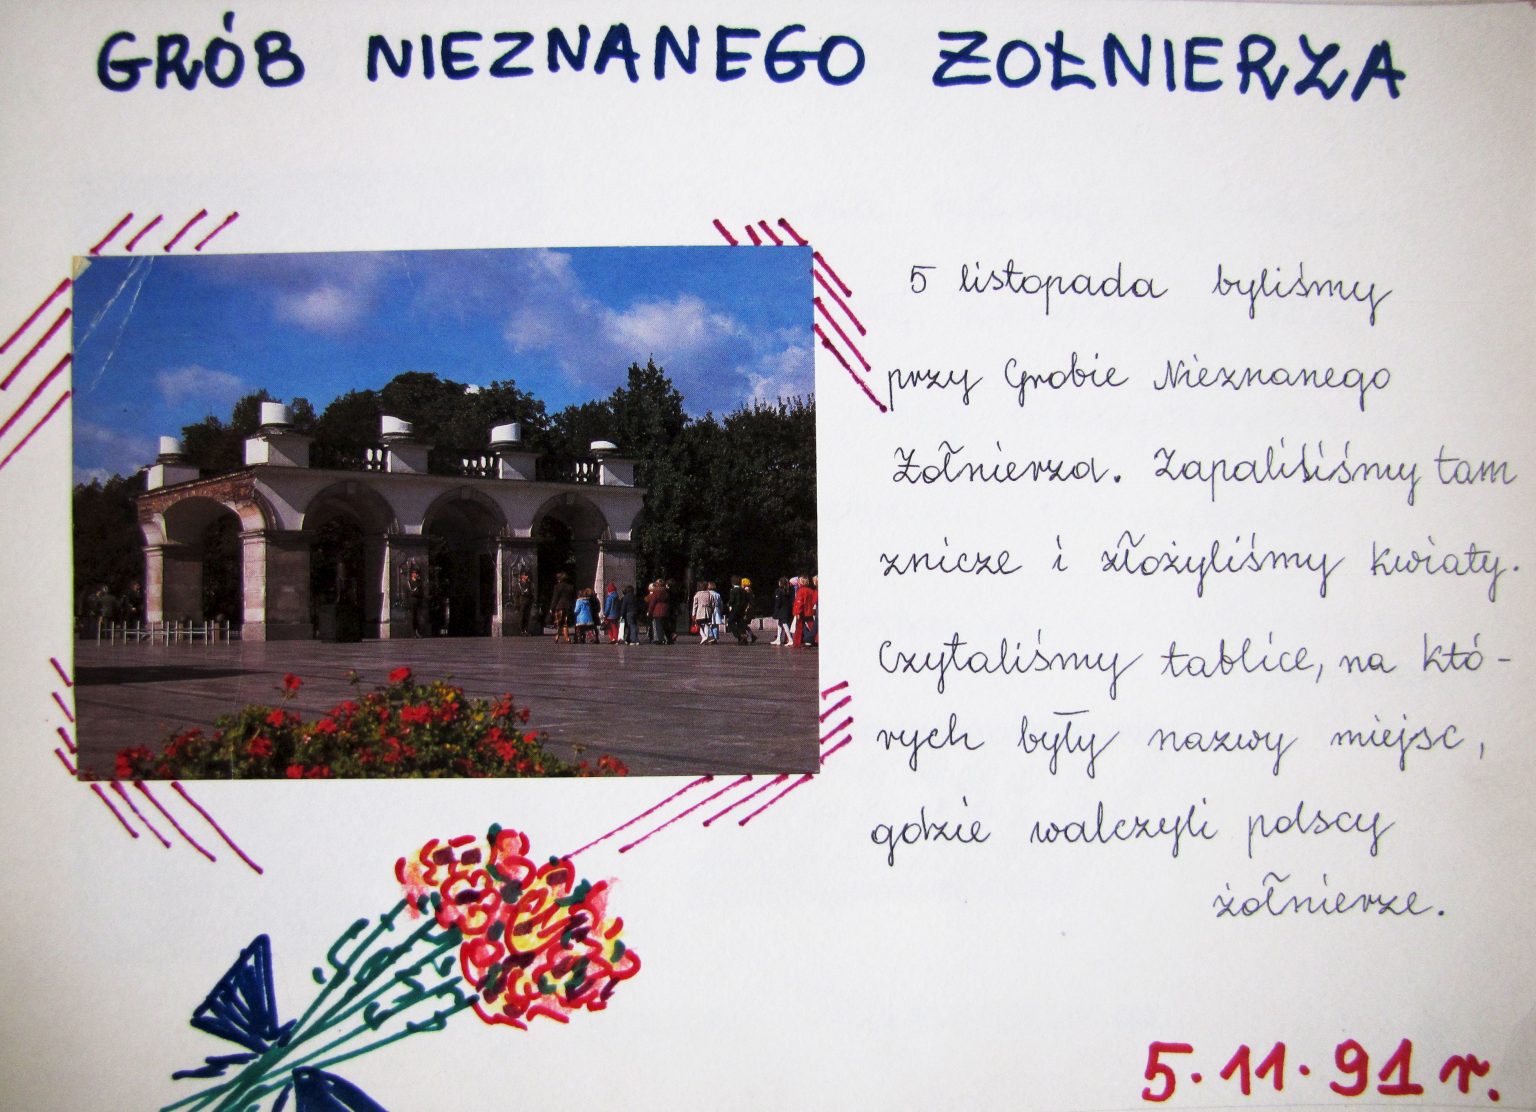 GRÓB NIEZNANEGO ŻOŁNIERZA
5 listopada byliśmy
przy Grobie Nieznanego
Żołnierza. Zapaliliśmy tam
znicze i złożyliśmy kwiaty.
Czytaliśmy tablice, na któ-
rych były nazwy miejsc,
gdzie walczyli polscy
żołnierze.
5.11.91 r.